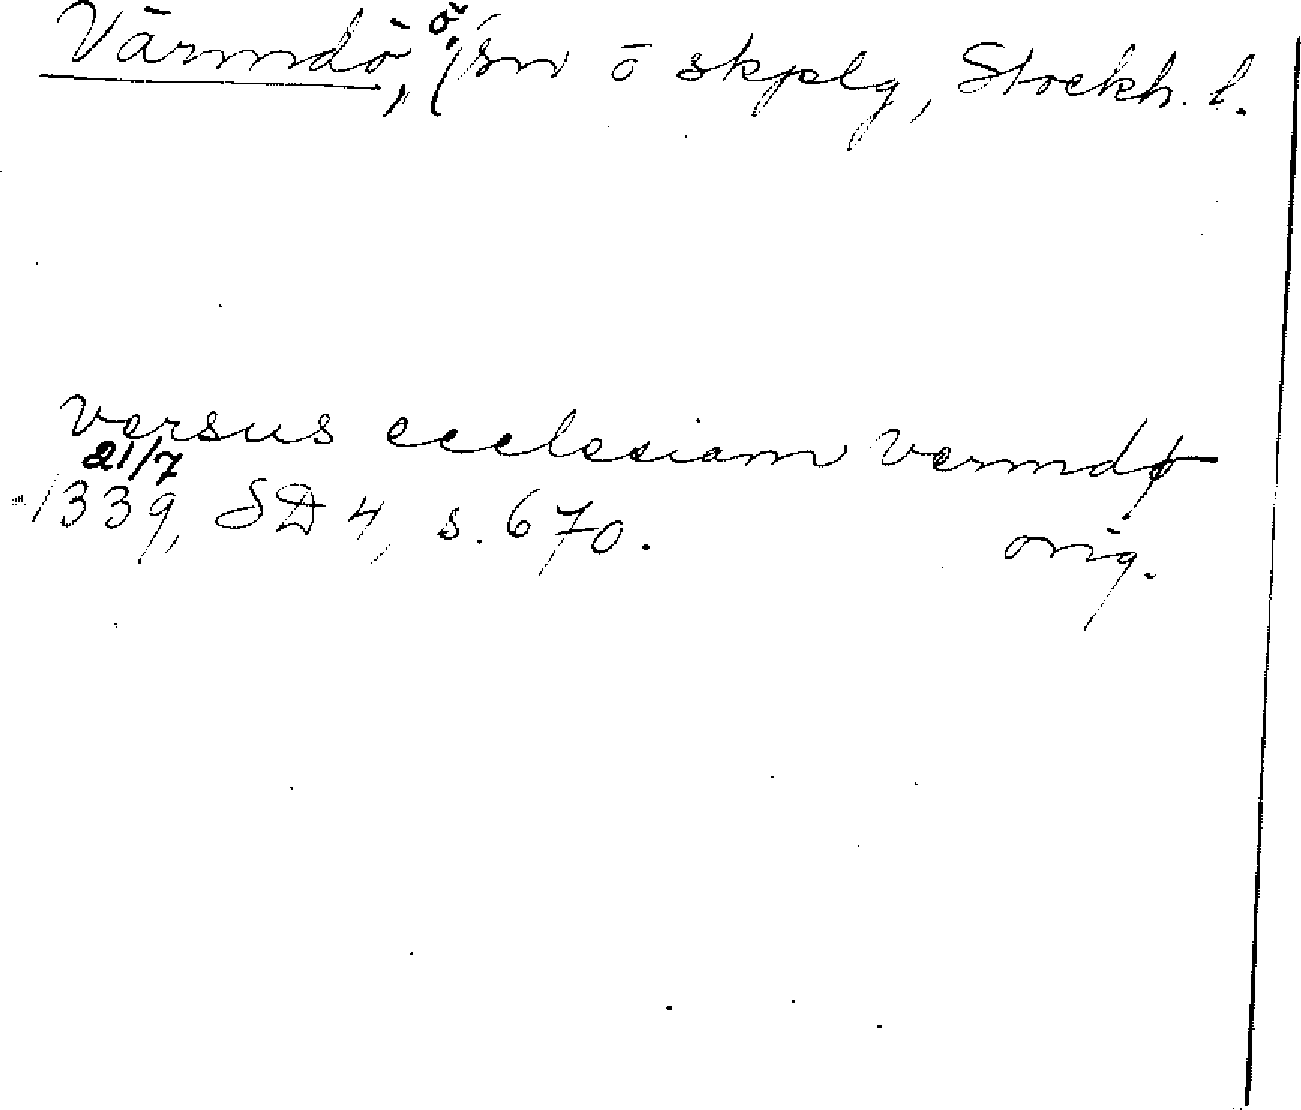 Värmdö, ö, (sn ö skplg, Stockh. l.
versus ecclesiam vermdø
21/7
1339, SD 4, s. 670. orig.